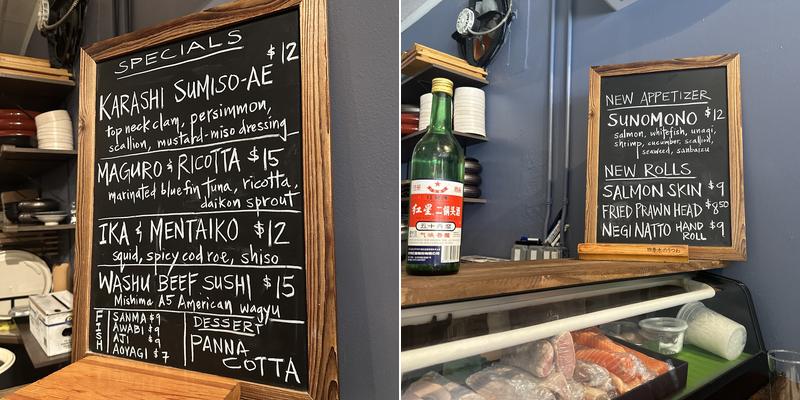 SPECIALS
KARASHI SUMISO-AE $12
top neck clam, persimmon,
scallion, mustard-miso dressing
MAGURO & RICOTTA $15
marinated bluefin tuna, ricotta,
daikon sprout
IKA & MENTAIKO $12
squid, spicy cod roe, shiso
WASHU BEEF SUSHI $15
Mishima A5 American wagyu
FISH
SANMA $9
AWABI $9
AJI $9
AOYAGI $7
DESSERT
PANNA
COTTA
NEW APPETIZER
SUNOMONO $12
salmon, whitefish, unagi,
shrimp, cucumber, scallion,
seaweed, sanbaizu
NEW ROLLS
SALMON SKIN $9
FRIED PRAWN HEAD $8.50
NEGI NATTO HAND $9
ROLL
红星 二锅头酒
五十六度